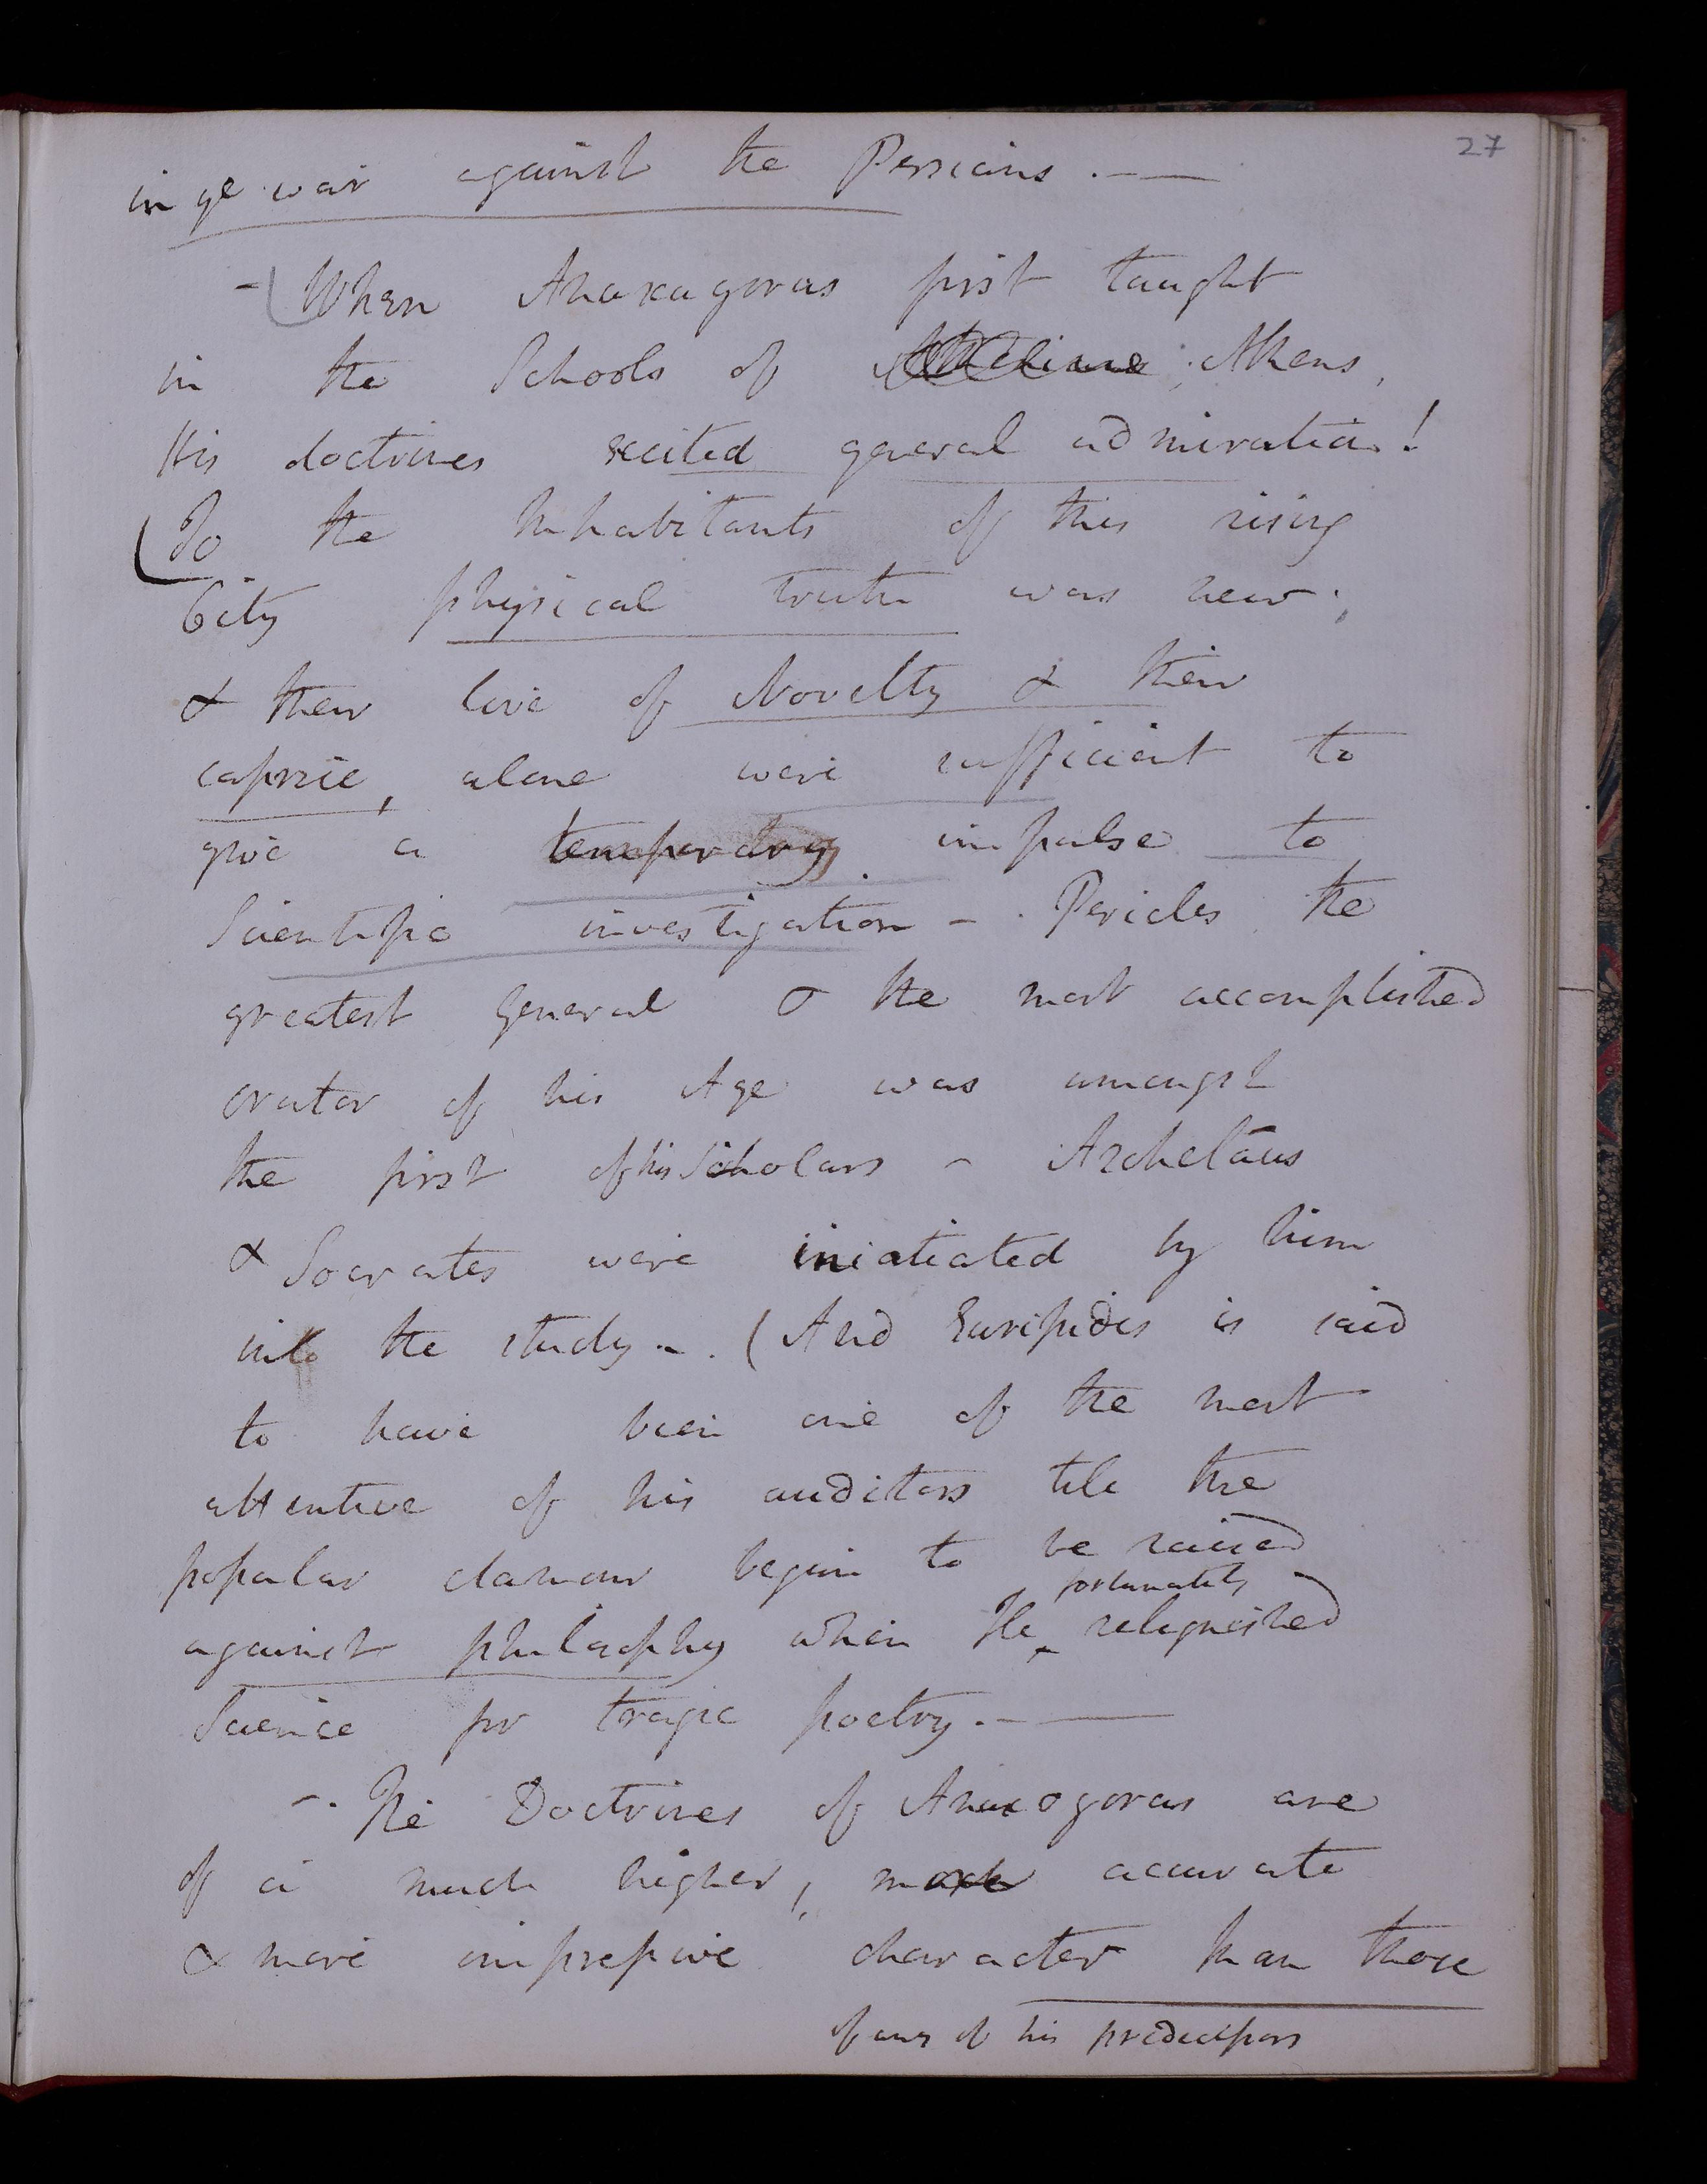 27
in ye war against the Persians. —
- When Anaxagoras first taught
in the Schools of Athens,
His doctrines excited general admiration!
To the Inhabitants of this rising
City physical truth was new;
& their love of Novelty & their
caprice, alone were sufficient to
give a temporary impulse to
Scientific investigation - . Pericles the
greatest General & the most accomplished
orator of his Age was amongst
the first of his Scholars - Archelaus
& Socrates were iniatiated by him
into the study -. (And Euripides is said
to have been one of the most
attentive of his auditors till the
popular clamour begun to be raised
fortunately
against philosophy when He ^ relinquished
Science for tragic poetry. —
-. The Doctrines of Anaxogoras are
of a much higher, more accurate
& more impressive character than those
of any of his predecessors